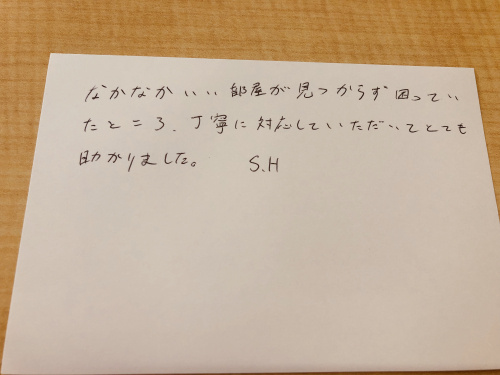 なかなかいい部屋が見つからず困ってい
たところ、丁寧に対応していただいてとても
助かりました。 S.H